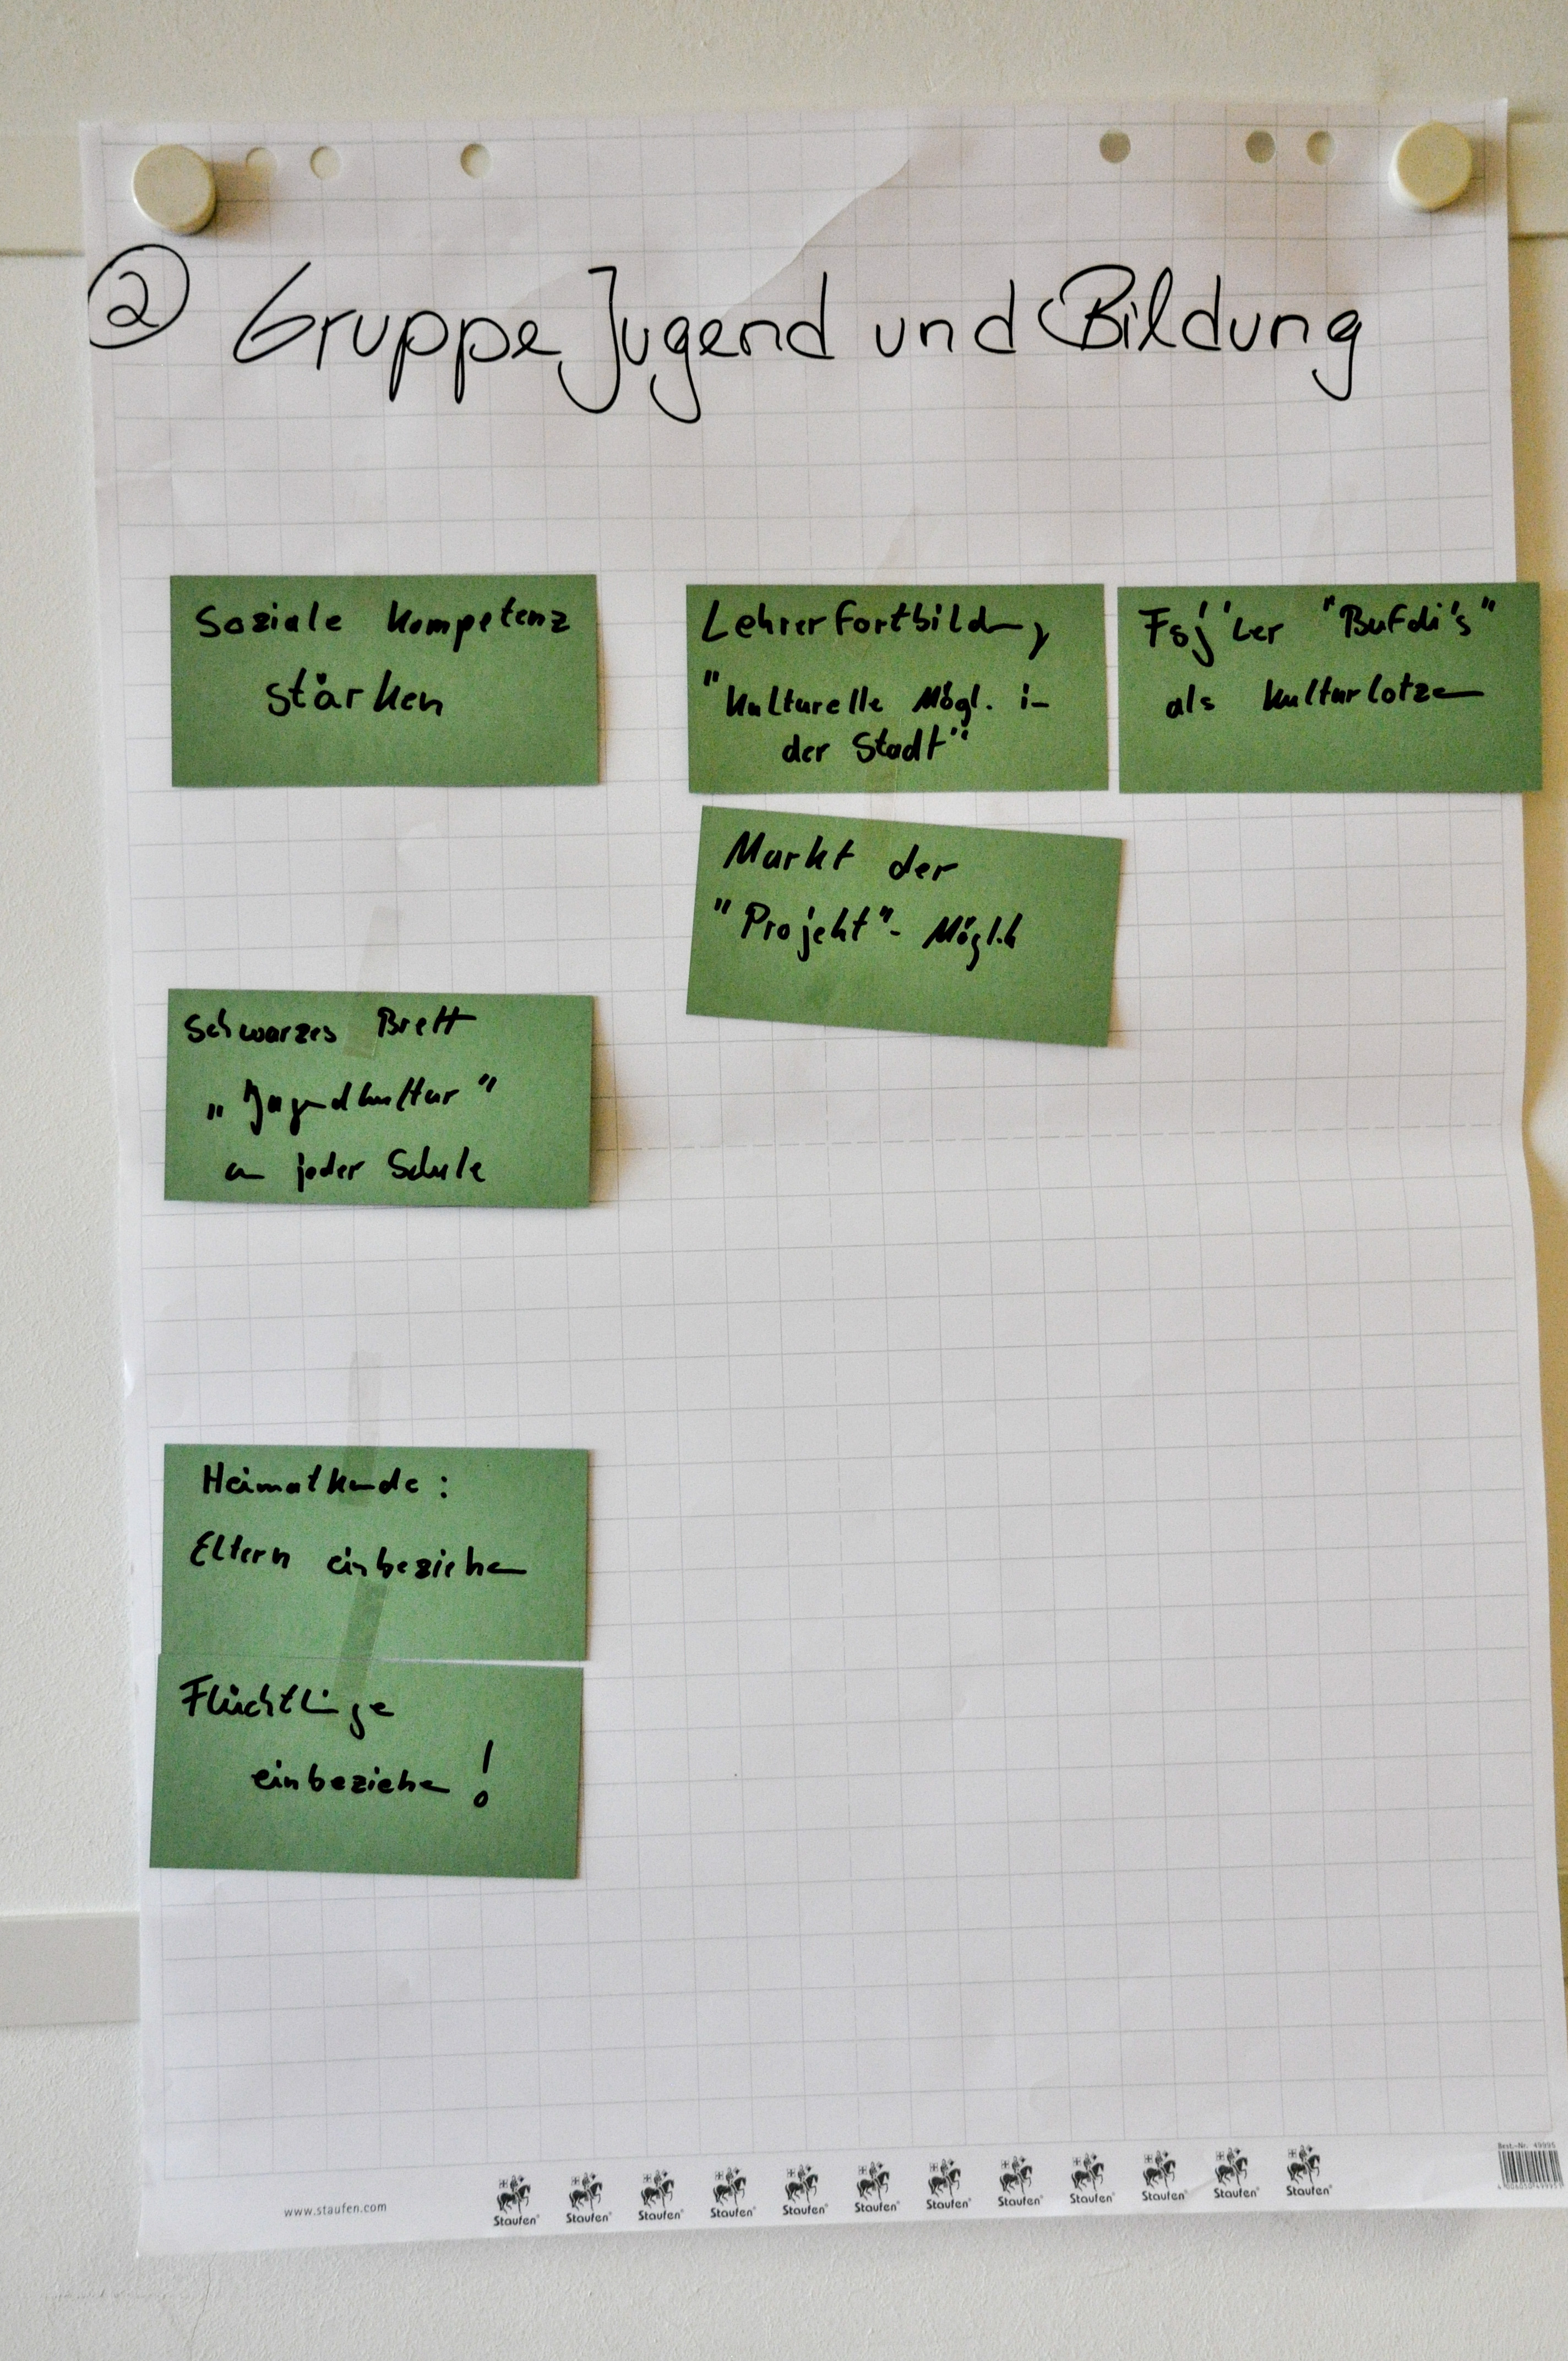 ② Gruppe Jugend und Bildung
Soziale Kompetenz
stärken
Lehrerfortbildung
"Kulturelle Mögl. in
der Stadt"
Fsj'ler "Bufdi's"
als Kulturlotzen
Markt der
"Projekt"- Möglk
Schwarzes Brett
„Jugendkultur"
an jeder Schule
Heimatkunde:
Eltern einbeziehen
Flüchtlinge
einbeziehen!
www.staufen.com
Staufen® Staufen® Staufen® Staufen® Staufen® Staufen® Staufen® Staufen® Staufen® Staufen® Staufen® Staufen®
Best.-Nr. 49996